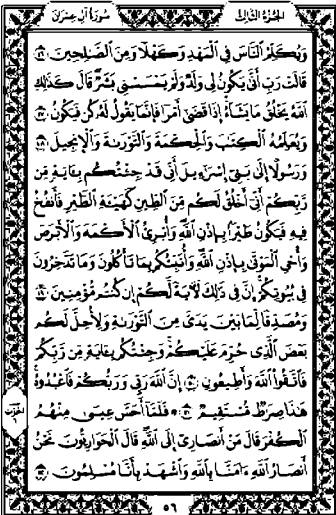 الجزء الثالث سورة آل عمران
ويكلم الناس في المهد وكهلا ومن الصالحين ٤٦
قالت رب أنى يكون لي ولد ولم يمسسني بشر قال كذلك
الله يخلق ما يشاء إذا قضى أمرا فإنما يقول له كن فيكون ٤٧
ويعلمه الكتاب والحكمة والتورىة والإنجيل ٤٨
ورسولا إلى بني إسرءيل أني قد جئتكم بءاية من
ربكم أني أخلق لكم من الطين كهيئة الطير فأنفخ
فيه فيكون طيرا بإذن الله وأبرئ الأكمه والأبرص
وأحي الموتى بإذن الله وأنبئكم بما تأكلون وما تدخرون
في بيوتكم إن في ذلك لءاية لكم إن كنتم مؤمنين ٤٩
ومصدقا لما بين يدي من التورىة ولأحل لكم
بعض الذي حرم عليكم وجئتكم بءاية من ربكم
فاتقوا الله وأطيعون ٥٠ إن الله ربي وربكم فاعبدوه
هذا صراط مستقيم ٥١ ۞ فلما أحس عيسى منهم
الكفر قال من أنصاري إلى الله قال الحواريون نحن
أنصار الله ءامنا بالله واشهد بأنا مسلمون ٥٢
٥٦